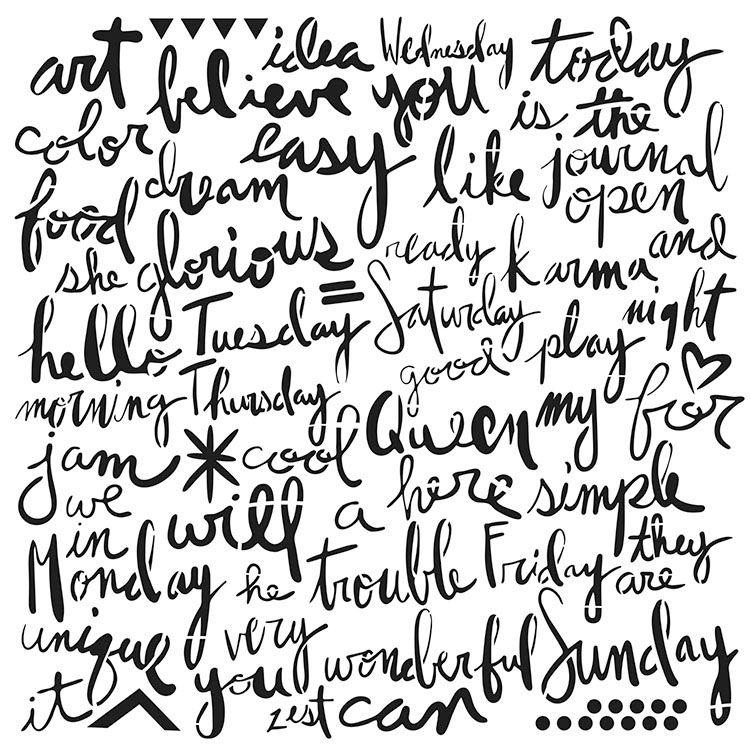 art idea Wednesday today
believe you is the
color easy journal
dream like open
food
she glorious ready karma and
hello Tuesday Saturday night
good play
morning Thursday for
jam cool Queen my
we will a here simple
in they
Monday he trouble Friday are
unique very
it you wonderful Sunday
zest can